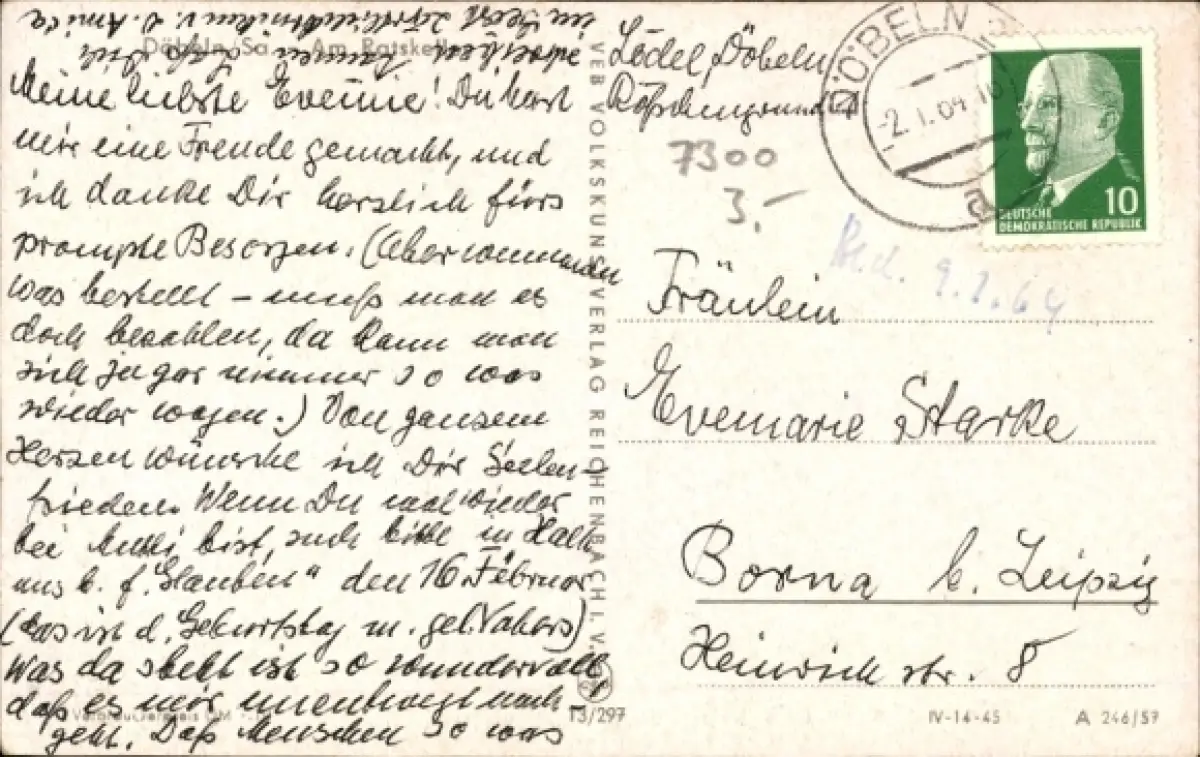 Meine liebste Evemie! Du hast
mir eine Freude gemacht, und
ich danke Dir herzlich fürs
prompte Besorgen. (Aber wenn man
was bestellt - muß man es
doch bezahlen, da kann man
sich ja gar nimmer so was
wieder wagen.) Von ganzem
Herzen wünsche ich Dir Seelen-
frieden. Wenn Du mal wieder
bei Mutti bist, such bitte in
aus b. f. Glauben" den 16. Februar
(das ist d. Geburtstag m. gel. Vaters)
Was da steht ist so wundervoll,
daß es mir unentwegt nach-
geht. Daß Menschen so was
im Geist
Döbeln, Sa. Am Ratskeller
VEB VOLKSKUNSTVERLAG REICHENBACH I. V.
13/297
Lödel, Döbeln
7300
3,-
DÖBELN
-2.1.64.10
a
10
DEUTSCHE
DEMOKRATISCHE REPUBLIK
9.1.64
Fräulein
Evemarie Starke
Borna b. Leipzig
Heinrichstr. 8
IV-14-45 A 246/57